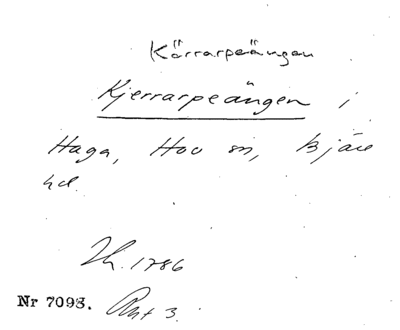 Kärrarpeängen
Kjerrarpeängen i
Haga, Hov sn, Bjäre
hd.
Zh. 1786
Nr 7093. Akt 3.